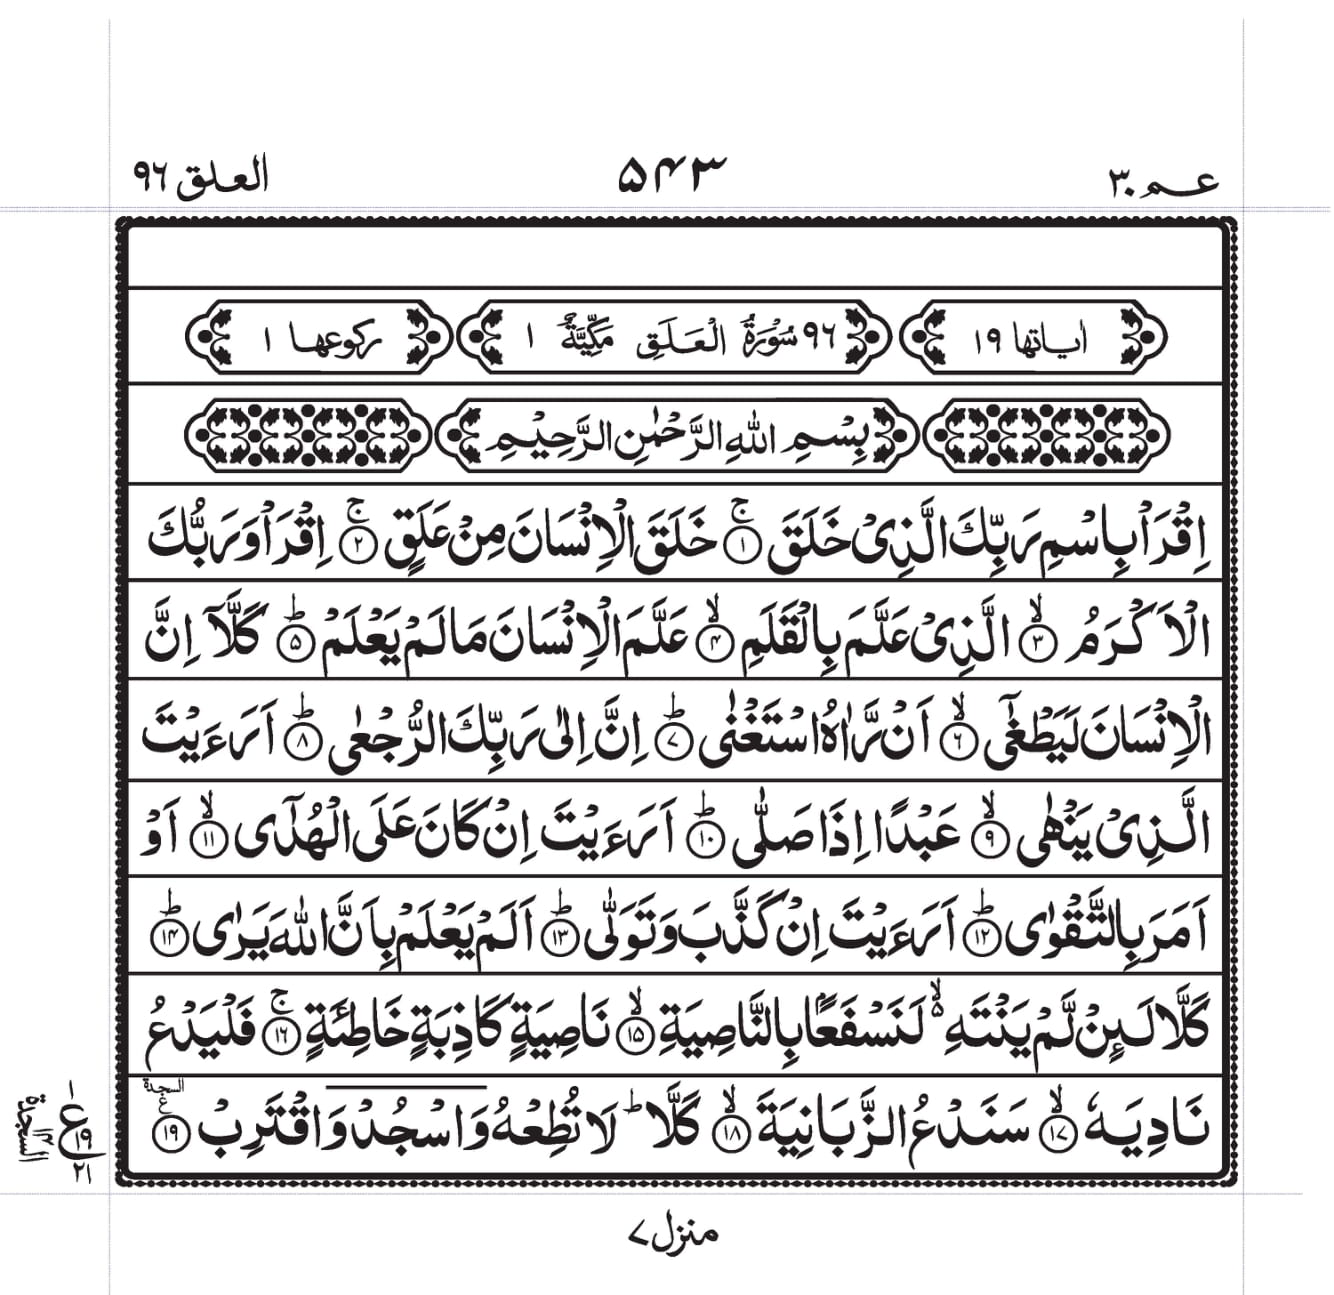 عـم ٣٠ ۵۴۳ العلق ٩٦
اٰیاتها ١٩ ٩٦ سُوْرَةُ الْعَلَقِ مَكِّیَّةٌ ١ ركوعها ١
بِسْمِ اللهِ الرَّحْمٰنِ الرَّحِیْمِ
اِقْرَاْ بِاسْمِ رَبِّكَ الَّذِیْ خَلَقَ ۚ ﴿١﴾ خَلَقَ الْاِنْسَانَ مِنْ عَلَقٍ ۚ ﴿٢﴾ اِقْرَاْ وَرَبُّكَ
الْاَكْرَمُ ۙ ﴿٣﴾ الَّذِیْ عَلَّمَ بِالْقَلَمِ ۙ ﴿۴﴾ عَلَّمَ الْاِنْسَانَ مَا لَمْ یَعْلَمْ ؕ ﴿۵﴾ كَلَّاۤ اِنَّ
الْاِنْسَانَ لَیَطْغٰۤی ۙ ﴿٦﴾ اَنْ رَّاٰهُ اسْتَغْنٰی ؕ ﴿٧﴾ اِنَّ اِلٰی رَبِّكَ الرُّجْعٰی ؕ ﴿٨﴾ اَرَءَیْتَ
الَّذِیْ یَنْهٰی ۙ ﴿٩﴾ عَبْدًا اِذَا صَلّٰی ؕ ﴿١٠﴾ اَرَءَیْتَ اِنْ كَانَ عَلَی الْهُدٰۤی ۙ ﴿١١﴾ اَوْ
اَمَرَ بِالتَّقْوٰی ؕ ﴿١٢﴾ اَرَءَیْتَ اِنْ كَذَّبَ وَتَوَلّٰی ؕ ﴿١٣﴾ اَلَمْ یَعْلَمْ بِاَنَّ اللهَ یَرٰی ؕ ﴿١۴﴾
كَلَّا لَىِٕنْ لَّمْ یَنْتَهِ ۙ۬ لَنَسْفَعًۢا بِالنَّاصِیَةِ ۙ ﴿١۵﴾ نَاصِیَةٍ كَاذِبَةٍ خَاطِئَةٍ ۚ ﴿١٦﴾ فَلْیَدْعُ
نَادِیَهٗ ۙ ﴿١٧﴾ سَنَدْعُ الزَّبَانِیَةَ ۙ ﴿١٨﴾ كَلَّا ؕ لَا تُطِعْهُ وَاسْجُدْ وَاقْتَرِبْ ﴿١٩﴾ السجدة ع
ع ١ ١٩ ٢١ السجدة ١٣
منزل ٧